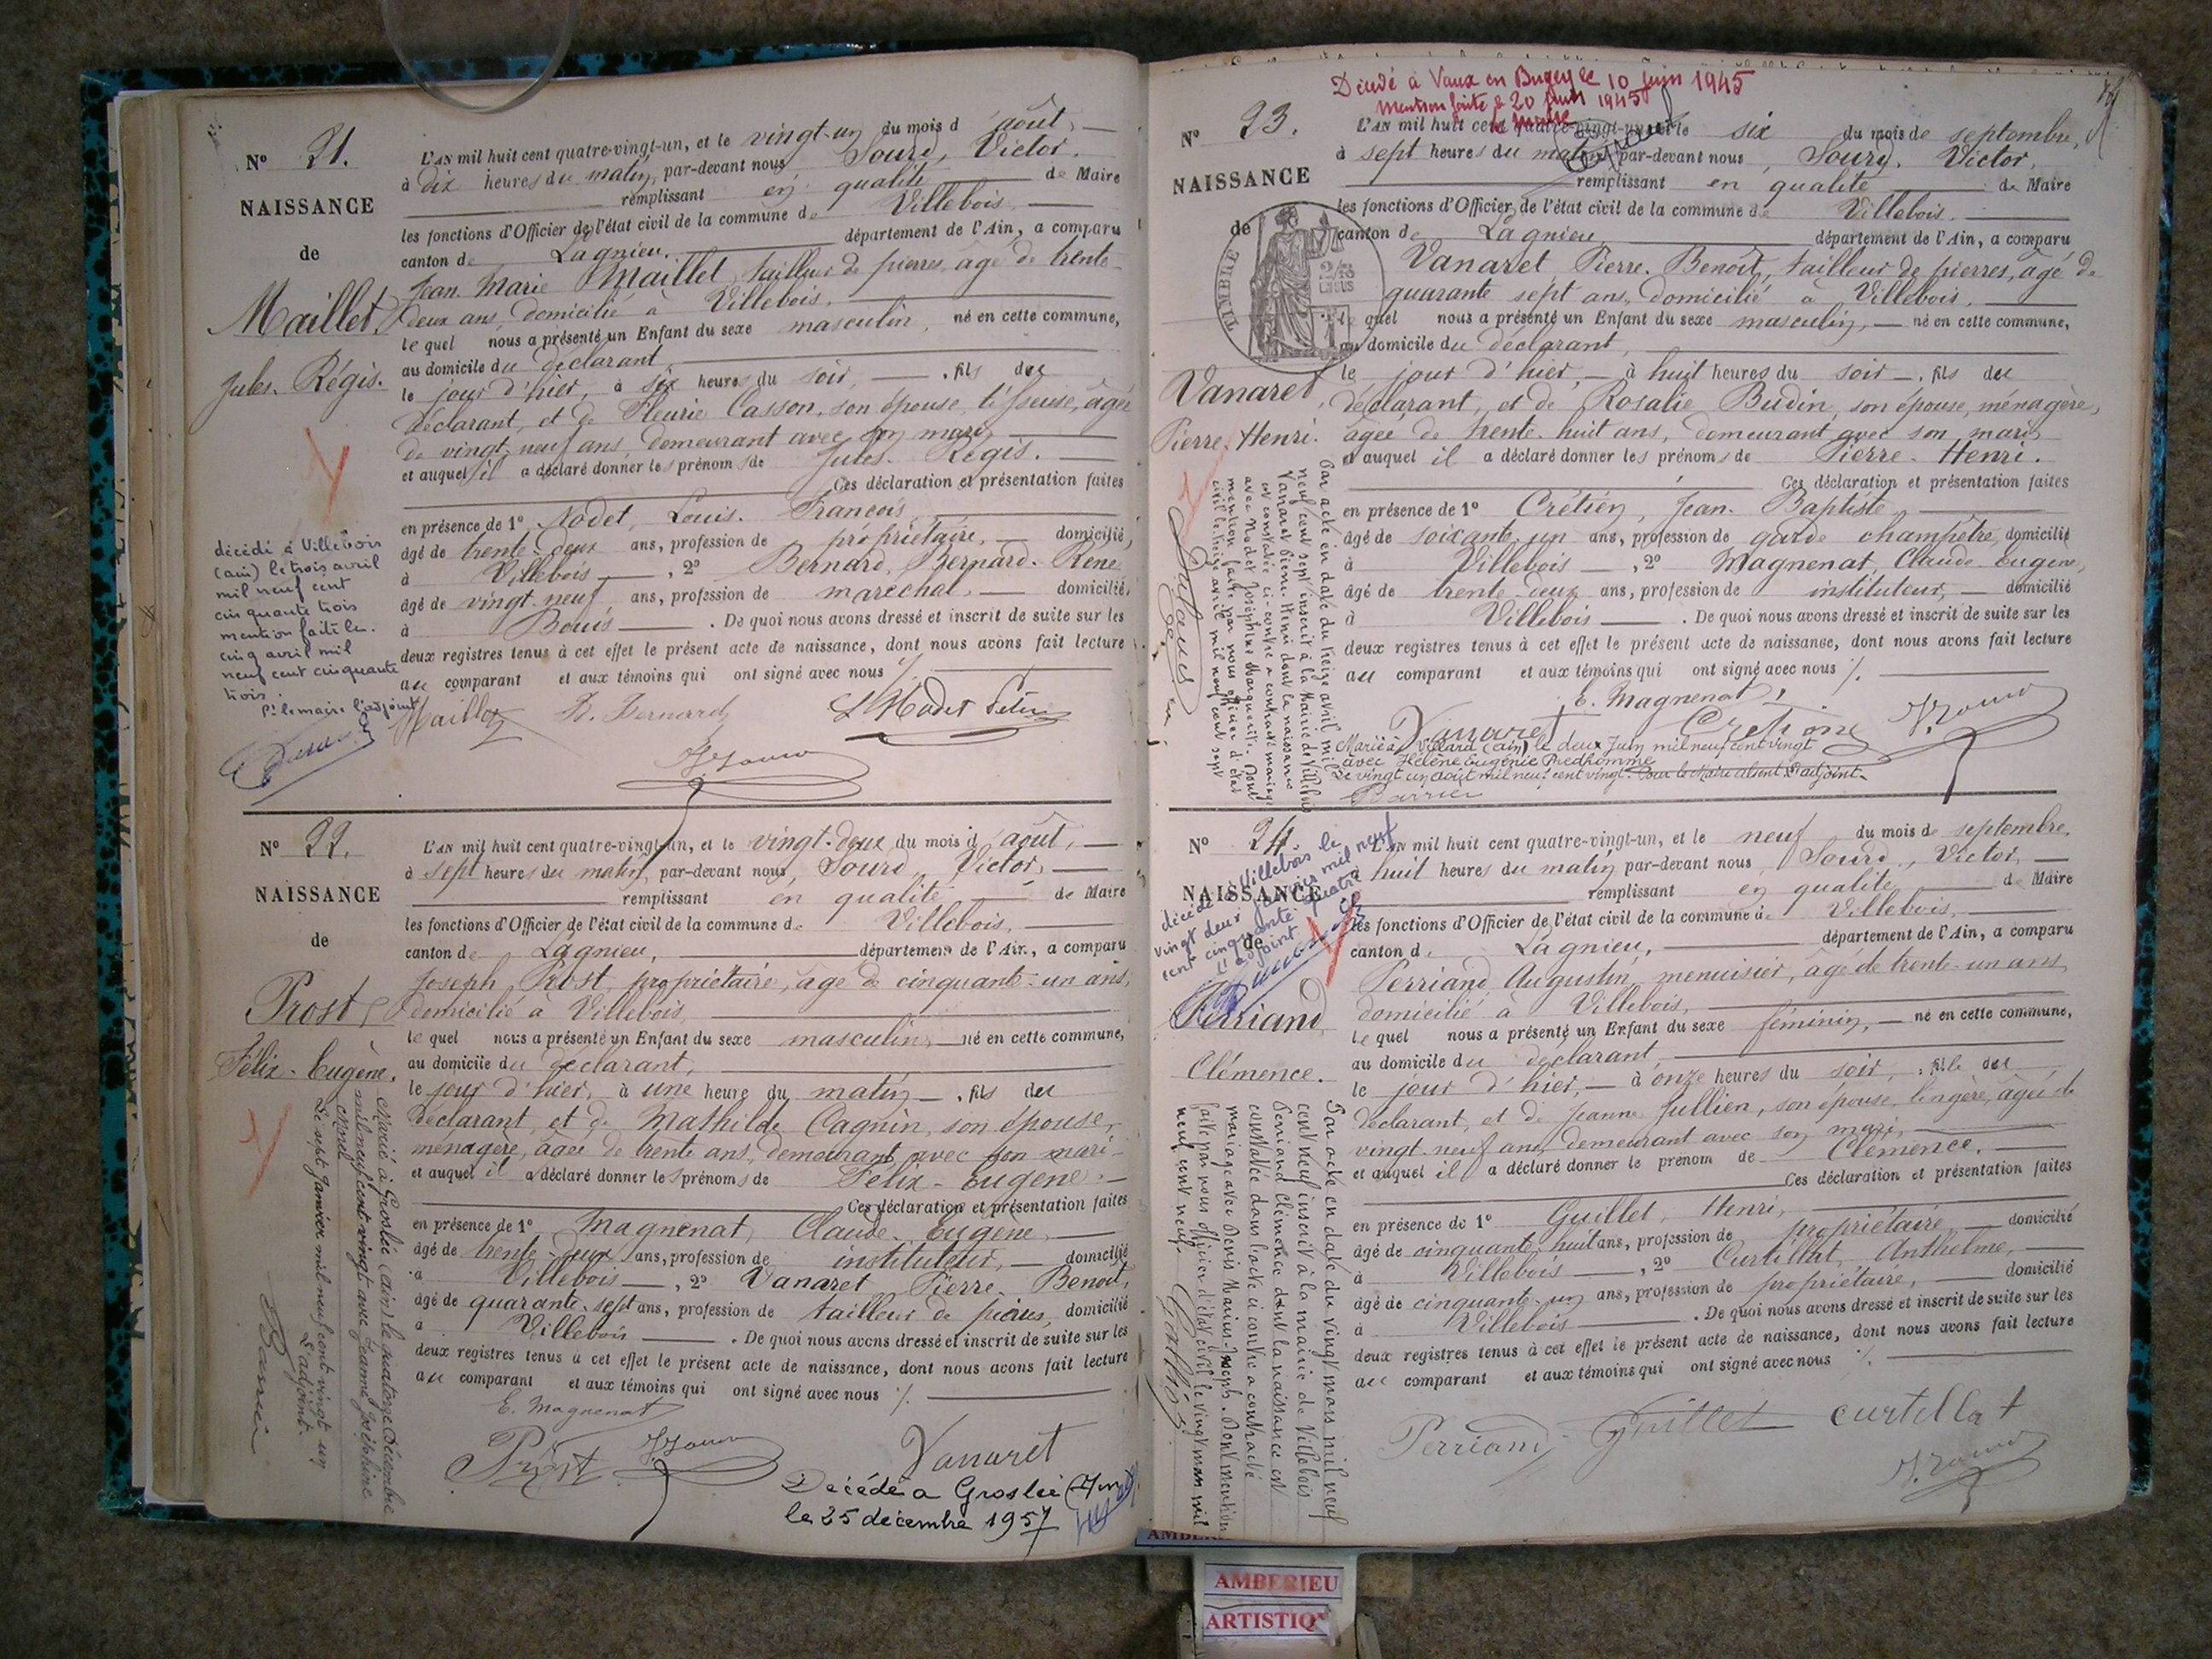 N° 21.
NAISSANCE
de
Maillet,
Jules. Régis.
L'AN mil huit cent quatre-vingt-un, et le vingt-un du mois d'août,
à dix heures du matin, par-devant nous, Sourd, Victor,
remplissant en qualité de Maire
les fonctions d'Officier de l'état civil de la commune de Villebois,
canton de Lagnieu, département de l'Ain, a comparu
Jean Marie Maillet, tailleur de pierres, âgé de trente
deux ans, domicilié à Villebois,
le quel nous a présenté un Enfant du sexe masculin, né en cette commune,
au domicile du déclarant,
le jour d'hier, à six heures du soir, fils du
déclarant, et de Fleurie Casson, son épouse, âgée
de vingt-neuf ans, demeurant avec son mari,
et auquel il a déclaré donner les prénoms de Jules. Régis.
Ces déclaration et présentation faites
en présence de 1° Nodet, Louis. François,
âgé de trente-deux ans, profession de propriétaire, domicilié,
à Villebois, 2° Bernard, Bernard. René
âgé de vingt-neuf ans, profession de maréchal, domicilié,
à Bouis. De quoi nous avons dressé et inscrit de suite sur les
deux registres tenus à cet effet le présent acte de naissance, dont nous avons fait lecture
au comparant et aux témoins qui ont signé avec nous
Maillet B. Bernard
décédé à Villebois
(ain) le trois avril
mil neuf cent
cinquante trois
mention faite le
cinq avril mil
neuf cent cinquante
trois.
Pr le maire l'adjoint
N° 22.
NAISSANCE
de
Prost,
Félix-Eugène.
L'AN mil huit cent quatre-vingt-un, et le vingt-deux du mois d'août,
à sept heures du matin, par-devant nous, Sourd, Victor,
remplissant en qualité de Maire
les fonctions d'Officier de l'état civil de la commune de Villebois,
canton de Lagnieu, département de l'Ain, a comparu
Joseph Prost, propriétaire, âgé de cinquante-un ans,
domicilié à Villebois,
le quel nous a présenté un Enfant du sexe masculin, né en cette commune,
au domicile du déclarant,
le jour d'hier, à une heure du matin, fils du
déclarant, et de Mathilde Cagnin, son épouse,
ménagère, âgée de trente ans, demeurant avec son mari
et auquel il a déclaré donner les prénoms de Félix-Eugène
Ces déclaration et présentation faites
en présence de 1° Magnenat, Claude. Eugène,
âgé de trente-deux ans, profession de instituteur, domicilié
à Villebois, 2° Vanaret Pierre. Benoît,
âgé de quarante-sept ans, profession de tailleur de pierres, domicilié
à Villebois. De quoi nous avons dressé et inscrit de suite sur les
deux registres tenus à cet effet le présent acte de naissance, dont nous avons fait lecture
au comparant et aux témoins qui ont signé avec nous
E. Magnenat
Prost
Vanaret
Décédé à Groslée (Ain)
le 25 décembre 1957
Marié à Groslée (Ain) le quatorze décembre
mil neuf cent vingt avec Jeanne Joséphine
Morel
Le sept janvier mil neuf cent vingt un
L'adjoint.
Décédé à Vaux en Bugey le 10 juin 1945
Mention faite le 20 juin 1945
Le Maire
N° 23.
NAISSANCE
de
TIMBRE
Vanaret,
Pierre. Henri.
L'AN mil huit cent quatre-vingt-un, et le six du mois de septembre,
à sept heures du matin, par-devant nous, Sourd, Victor,
remplissant en qualité de Maire
les fonctions d'Officier de l'état civil de la commune de Villebois,
canton de Lagnieu, département de l'Ain, a comparu
Vanaret, Pierre. Benoît, tailleur de pierres, âgé de
quarante sept ans, domicilié à Villebois,
le quel nous a présenté un Enfant du sexe masculin, né en cette commune,
au domicile du déclarant,
le jour d'hier, à huit heures du soir, fils du
déclarant, et de Rosalie Budin, son épouse, ménagère,
âgée de trente-huit ans, demeurant avec son mari,
et auquel il a déclaré donner les prénoms de Pierre. Henri.
Ces déclaration et présentation faites
en présence de 1° Crétien, Jean. Baptiste,
âgé de soixante-un ans, profession de garde champêtre, domicilié
à Villebois, 2° Magnenat, Claude. Eugène,
âgé de trente-deux ans, profession de instituteur, domicilié
à Villebois. De quoi nous avons dressé et inscrit de suite sur les
deux registres tenus à cet effet le présent acte de naissance, dont nous avons fait lecture
au comparant et aux témoins qui ont signé avec nous
E. Magnenat
Vanaret
Marié à Villard (ain) le deux Juin mil neuf cent vingt
avec Hélène Eugénie Predhomme
Le vingt un août mil neuf cent vingt. Pour le Maire absent L'adjoint.
Par acte en date du treize avril mil
neuf cent sept inscrit à la Mairie de Villebois
Vanaret Pierre Henri dont la naissance
est constatée ci-contre a contracté mariage
avec Nodet Joséphine Marguerite. Dont
mention faite par nous officier d'état
civil le treize avril mil neuf cent sept
N° 24.
NAISSANCE
de
Perriand,
Clémence.
décédée à Villebois le
vingt deux mil neuf
cent cinquante quatre
L'adjoint
L'AN mil huit cent quatre-vingt-un, et le neuf du mois de septembre,
à huit heures du matin par-devant nous, Sourd, Victor,
remplissant en qualité de Maire
les fonctions d'Officier de l'état civil de la commune de Villebois,
canton de Lagnieu, département de l'Ain, a comparu
Perriand, Augustin, menuisier, âgé de trente-un ans,
domicilié à Villebois,
le quel nous a présenté un Enfant du sexe féminin, né en cette commune,
au domicile du déclarant,
le jour d'hier, à onze heures du soir, fille du
déclarant, et de Jeanne Jullien, son épouse, lingère, âgée de
vingt-neuf ans, demeurant avec son mari,
et auquel il a déclaré donner le prénom de Clémence.
Ces déclaration et présentation faites
en présence de 1° Guillet, Henri,
âgé de cinquante-huit ans, profession de propriétaire, domicilié
à Villebois, 2° Curtillat, Anthelme,
âgé de cinquante-un ans, profession de propriétaire, domicilié
à Villebois. De quoi nous avons dressé et inscrit de suite sur les
deux registres tenus à cet effet le présent acte de naissance, dont nous avons fait lecture
au comparant et aux témoins qui ont signé avec nous
Perriand Guillet Curtellat
Par acte en date du vingt mars mil neuf
cent neuf inscrit à la mairie de Villebois
Perriand Clémence dont la naissance est
constatée dans l'acte ci contre a contracté
mariage avec Denis Marius-Joseph. Dont mention
fait par nous officier d'état civil le vingt mars mil
neuf cent neuf.
AMBERIEU
ARTISTIQ